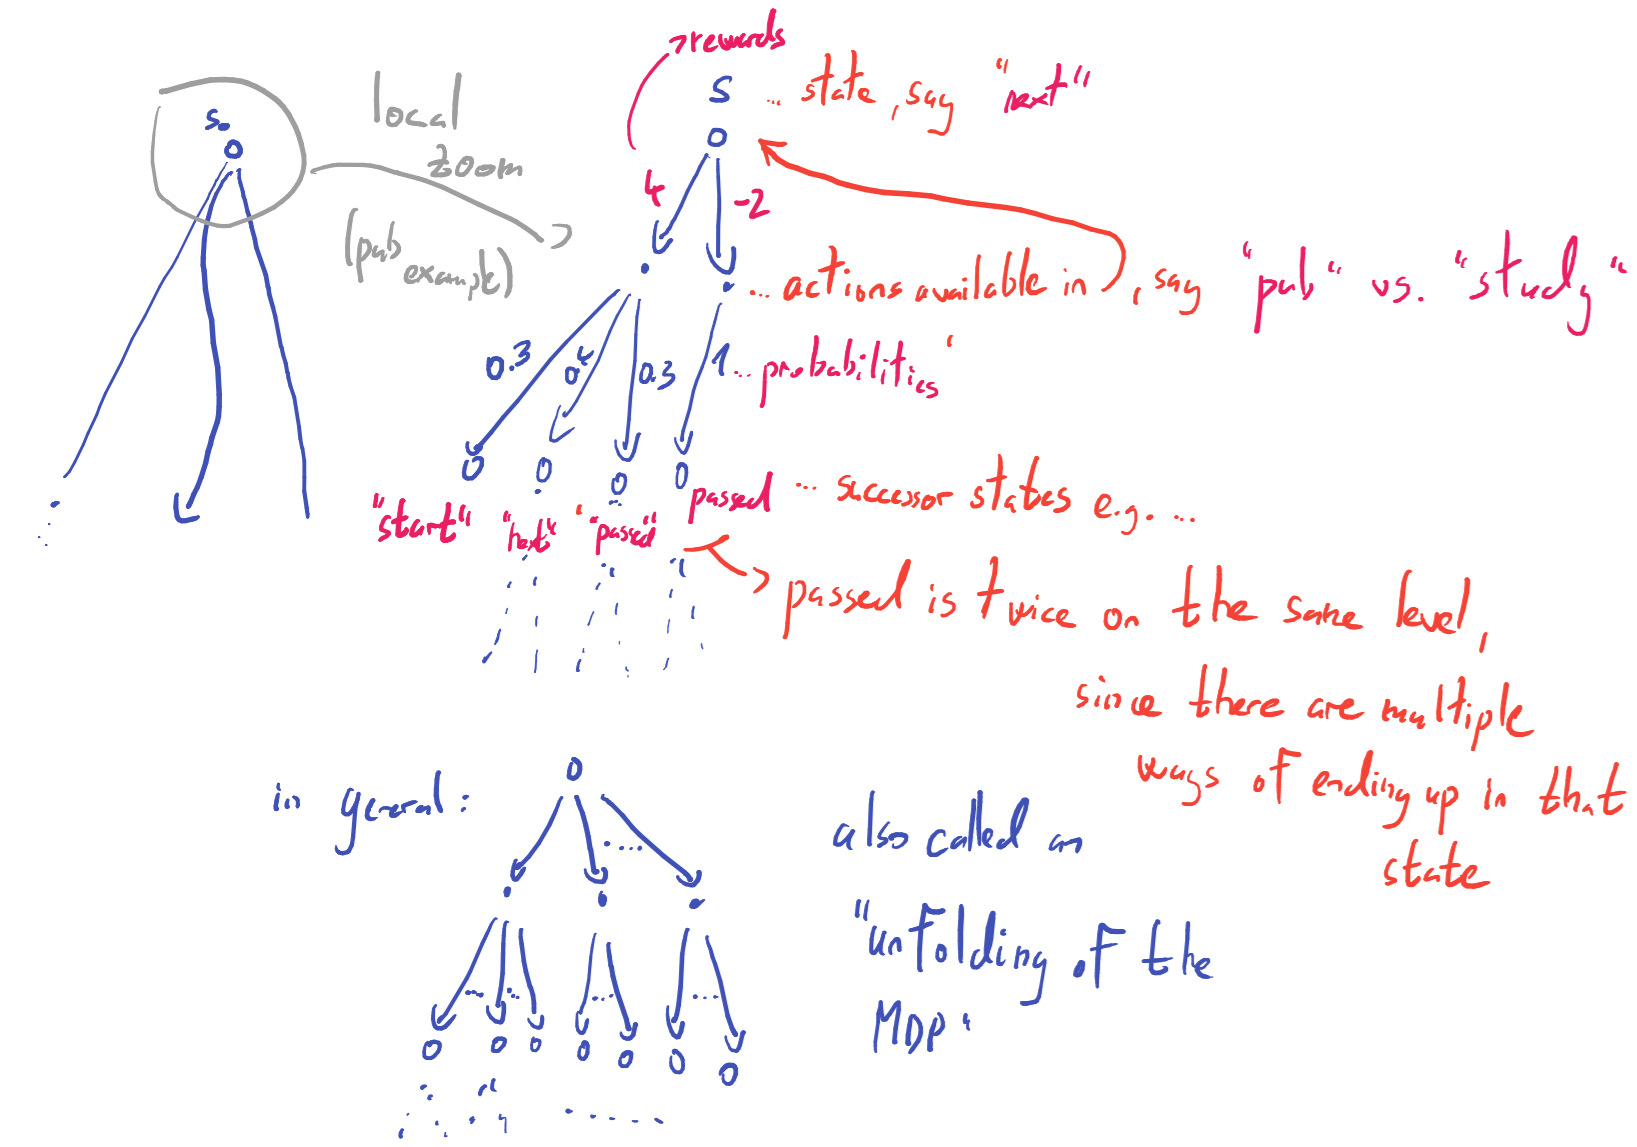 rewards
s ... state, say "next"
s₀
local
zoom
(pub
example)
4
-2
... actions available in , say "pub" vs. "study"
0.3
0.4
0.3
1 ... probabilities
"start"
"next"
"passed"
passed ... successor states e.g. ...
passed is twice on the same level,
since there are multiple
ways of ending up in that
state
in general:
also called an
"unfolding of the
MDP"